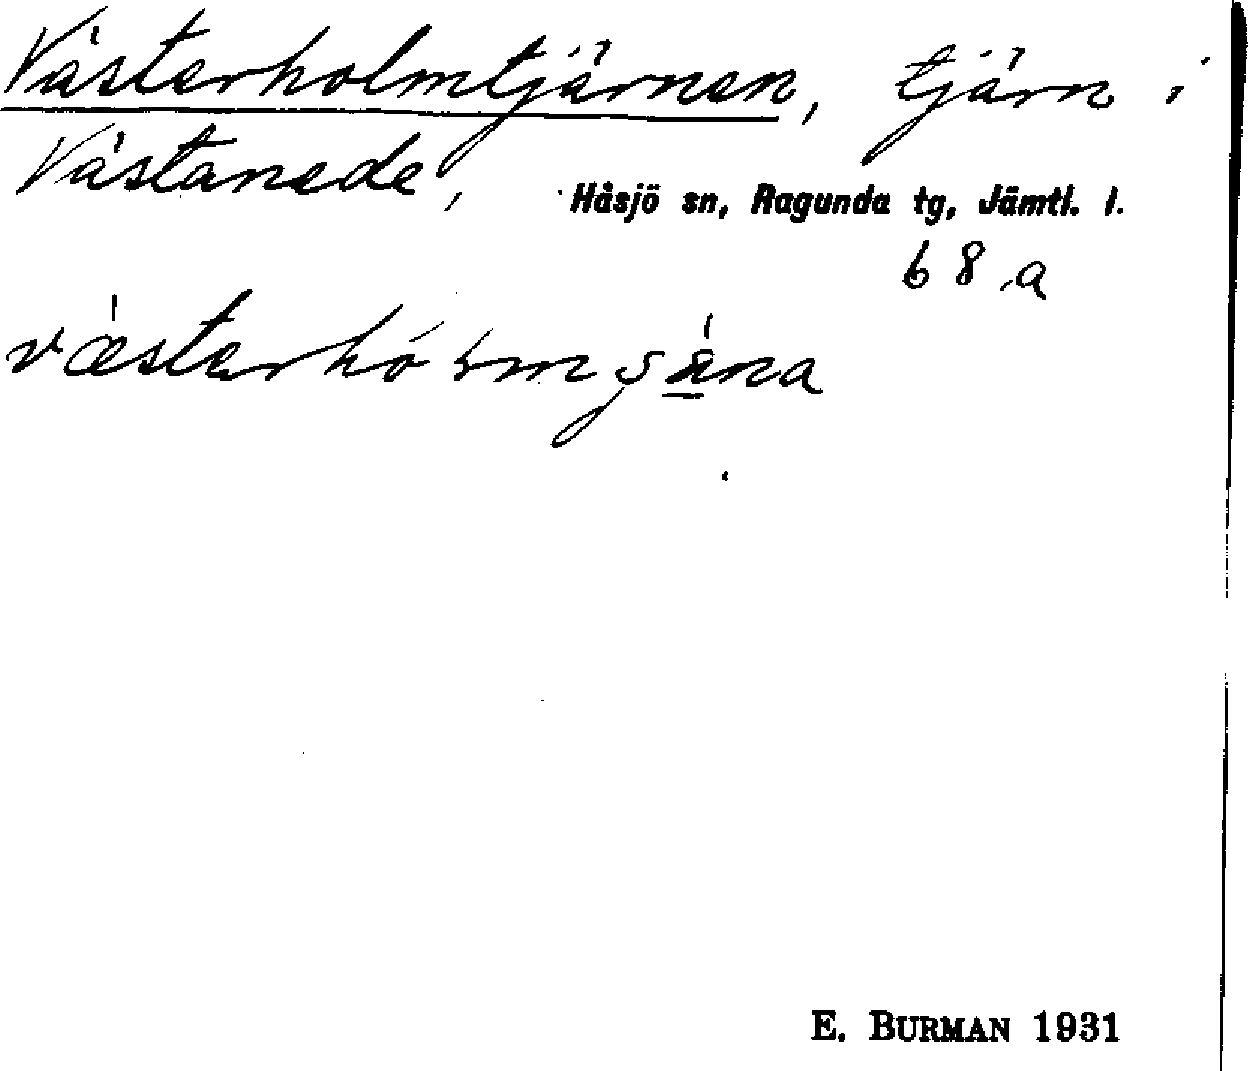 Västerholmtjärnen, tjärn i
Västanede, Håsjö sn, Ragunda tg, Jämtl. l.
68 a
E. BURMAN 1931